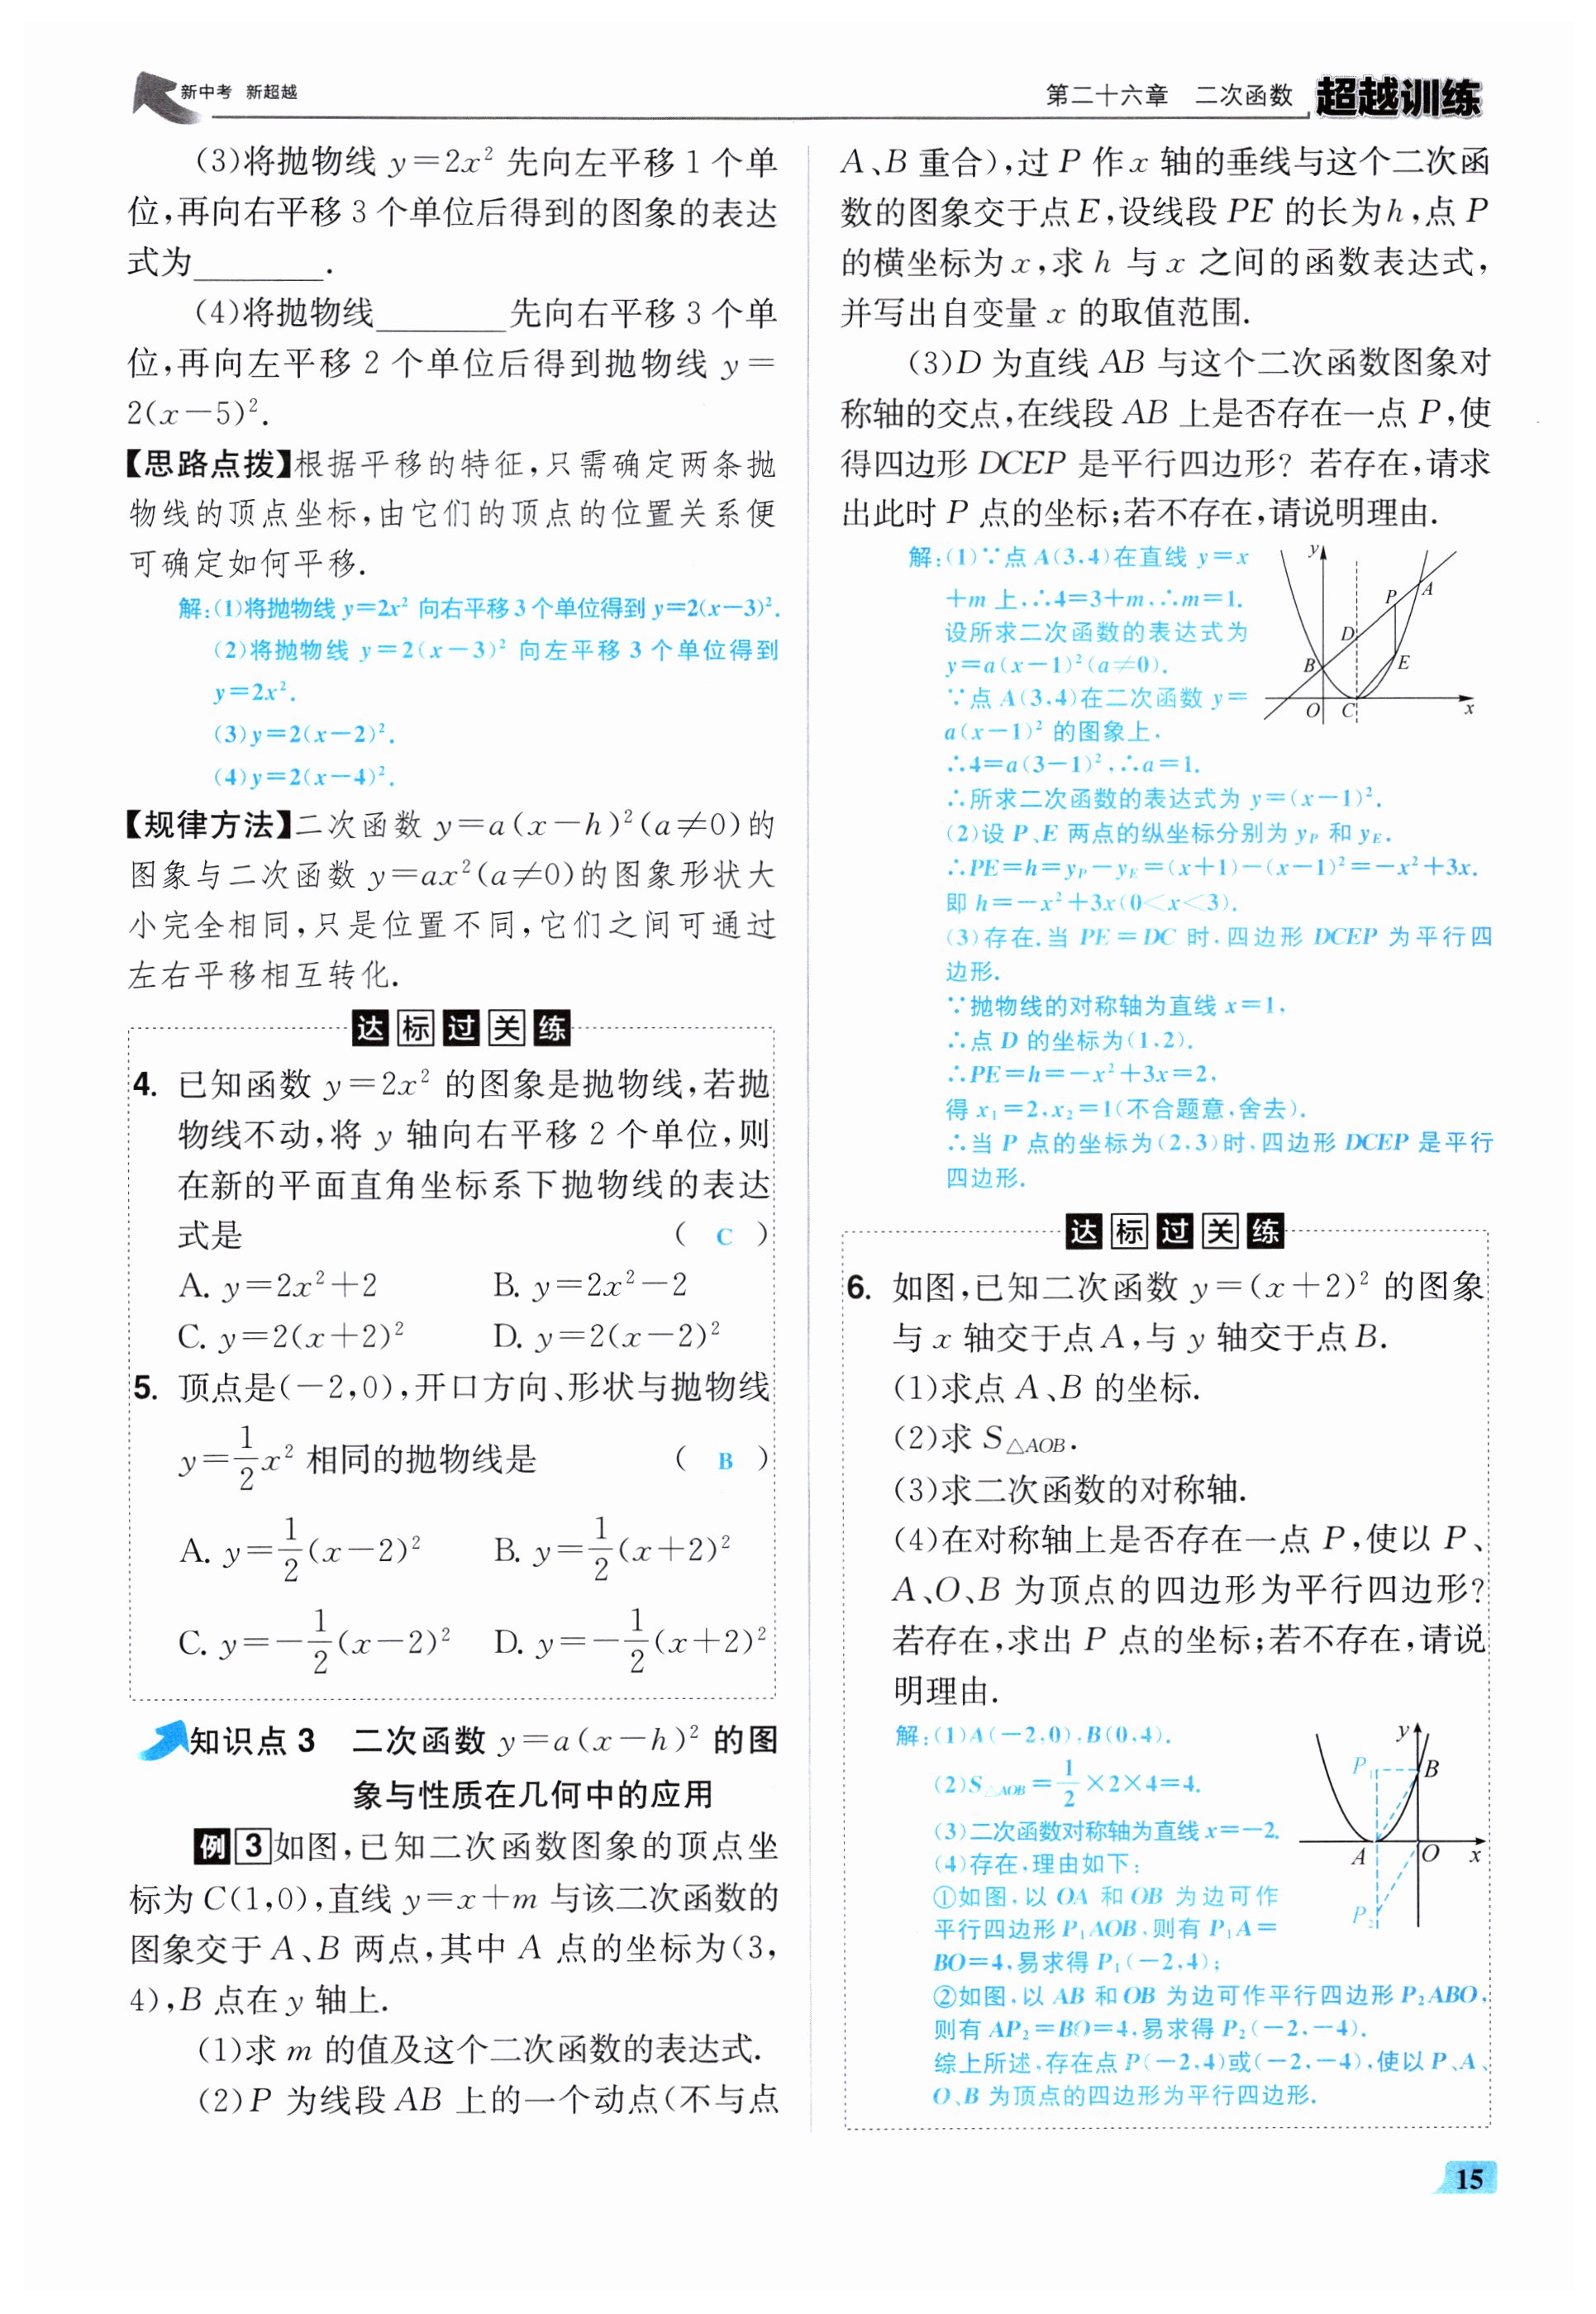 新中考 新超越
第二十六章 二次函数 超越训练
(3)将抛物线 y=2x² 先向左平移 1 个单
位,再向右平移 3 个单位后得到的图象的表达
式为________.
(4)将抛物线________先向右平移 3 个单
位,再向左平移 2 个单位后得到抛物线 y=
2(x-5)².
【思路点拨】根据平移的特征,只需确定两条抛
物线的顶点坐标,由它们的顶点的位置关系便
可确定如何平移.
解:(1)将抛物线 y=2x² 向右平移 3 个单位得到 y=2(x-3)².
(2)将抛物线 y=2(x-3)² 向左平移 3 个单位得到
y=2x².
(3)y=2(x-2)².
(4)y=2(x-4)².
【规律方法】二次函数 y=a(x-h)²(a≠0)的
图象与二次函数 y=ax²(a≠0)的图象形状大
小完全相同,只是位置不同,它们之间可通过
左右平移相互转化.
达标过关练
4. 已知函数 y=2x² 的图象是抛物线,若抛
物线不动,将 y 轴向右平移 2 个单位,则
在新的平面直角坐标系下抛物线的表达
式是 ( C )
A. y=2x²+2 B. y=2x²-2
C. y=2(x+2)² D. y=2(x-2)²
5. 顶点是(-2,0),开口方向、形状与抛物线
y=1/2x² 相同的抛物线是 ( B )
A. y=1/2(x-2)² B. y=1/2(x+2)²
C. y=-1/2(x-2)² D. y=-1/2(x+2)²
知识点 3 二次函数 y=a(x-h)² 的图
象与性质在几何中的应用
例 3 如图,已知二次函数图象的顶点坐
标为 C(1,0),直线 y=x+m 与该二次函数的
图象交于 A、B 两点,其中 A 点的坐标为(3,
4),B 点在 y 轴上.
(1)求 m 的值及这个二次函数的表达式.
(2)P 为线段 AB 上的一个动点(不与点
A、B 重合),过 P 作 x 轴的垂线与这个二次函
数的图象交于点 E,设线段 PE 的长为 h,点 P
的横坐标为 x,求 h 与 x 之间的函数表达式,
并写出自变量 x 的取值范围.
(3)D 为直线 AB 与这个二次函数图象对
称轴的交点,在线段 AB 上是否存在一点 P,使
得四边形 DCEP 是平行四边形? 若存在,请求
出此时 P 点的坐标;若不存在,请说明理由.
解:(1)∵点 A(3,4)在直线 y=x
+m 上,∴4=3+m,∴m=1.
设所求二次函数的表达式为
y=a(x-1)²(a≠0).
∵点 A(3,4)在二次函数 y=
a(x-1)² 的图象上,
∴4=a(3-1)²,∴a=1.
∴所求二次函数的表达式为 y=(x-1)².
y
P
A
D
B
E
O
C
x
(2)设 P、E 两点的纵坐标分别为 y_P 和 y_E.
∴PE=h=y_P-y_E=(x+1)-(x-1)²=-x²+3x.
即 h=-x²+3x(0<x<3).
(3)存在.当 PE=DC 时,四边形 DCEP 为平行四
边形.
∵抛物线的对称轴为直线 x=1,
∴点 D 的坐标为(1,2).
∴PE=h=-x²+3x=2,
得 x₁=2,x₂=1(不合题意,舍去).
∴当 P 点的坐标为(2,3)时,四边形 DCEP 是平行
四边形.
达标过关练
6. 如图,已知二次函数 y=(x+2)² 的图象
与 x 轴交于点 A,与 y 轴交于点 B.
(1)求点 A、B 的坐标.
(2)求 S△AOB.
(3)求二次函数的对称轴.
(4)在对称轴上是否存在一点 P,使以 P、
A、O、B 为顶点的四边形为平行四边形?
若存在,求出 P 点的坐标;若不存在,请说
明理由.
解:(1)A(-2,0),B(0,4).
(2)S△AOB=1/2×2×4=4.
(3)二次函数对称轴为直线 x=-2.
(4)存在,理由如下:
①如图,以 OA 和 OB 为边可作
平行四边形 P₁AOB,则有 P₁A=
BO=4,易求得 P₁(-2,4);
y
P₁
B
A
O
x
P₂
②如图,以 AB 和 OB 为边可作平行四边形 P₂ABO,
则有 AP₂=BO=4,易求得 P₂(-2,-4).
综上所述,存在点 P(-2,4)或(-2,-4),使以 P、A、
O、B 为顶点的四边形为平行四边形.
15